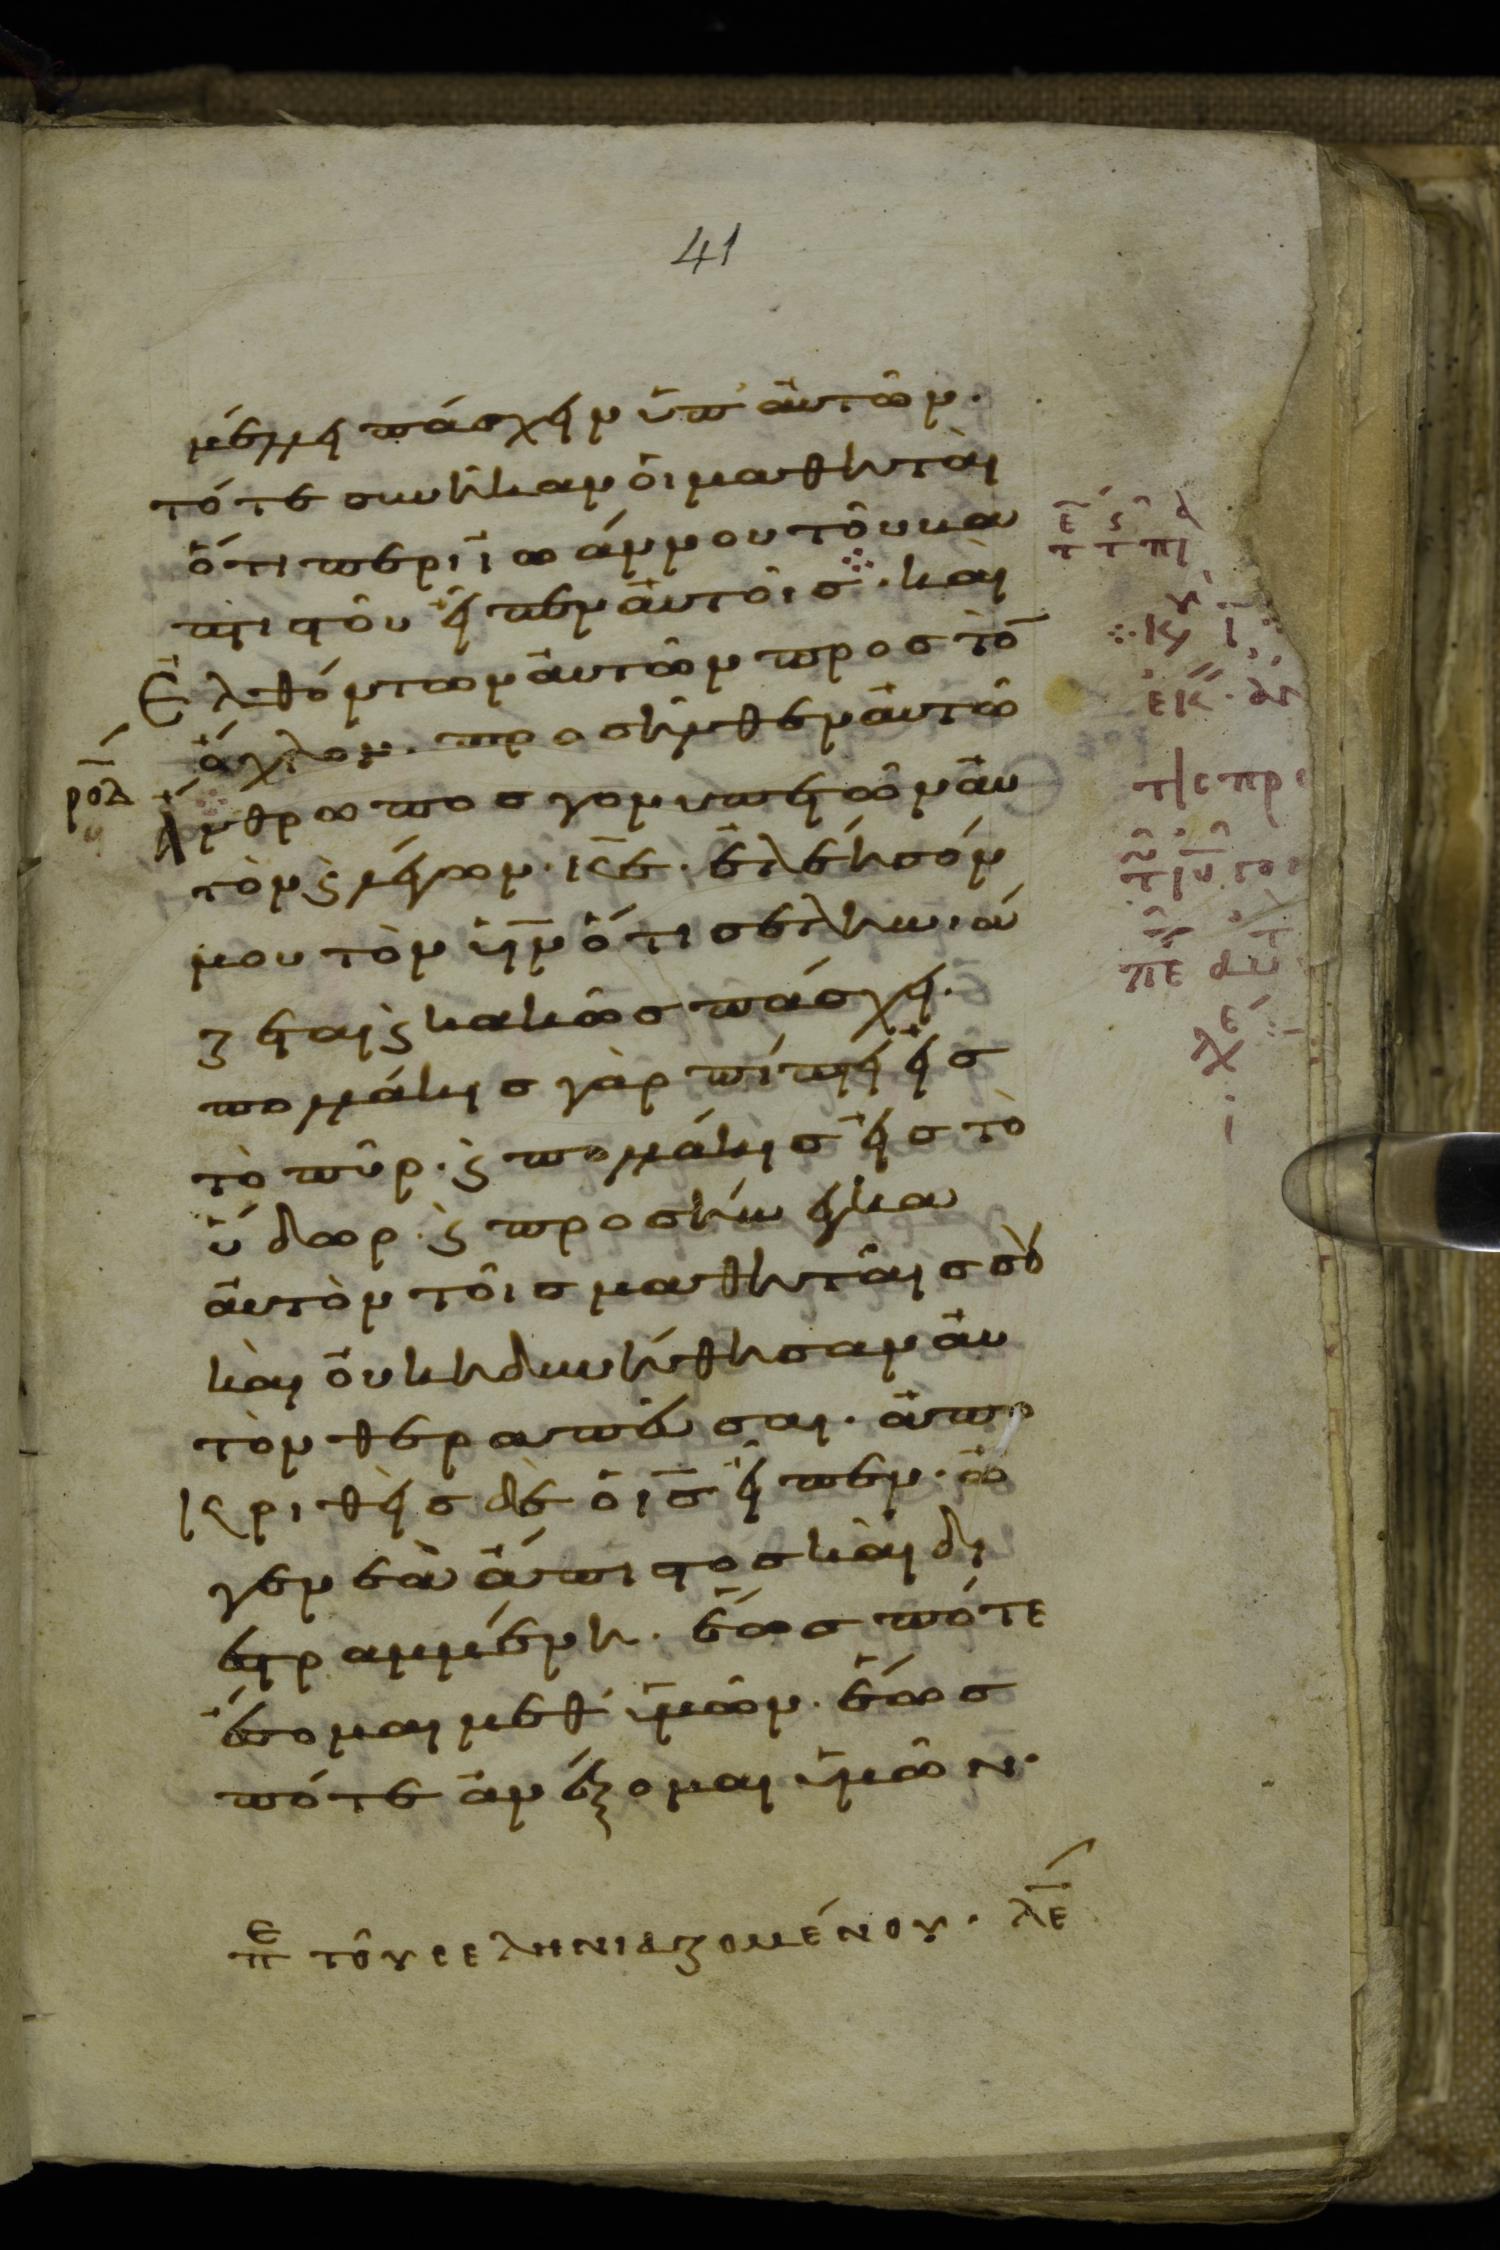 41
μέλλει πάσχειν ὑπ' αὐτῶν.
τότε συνῆκαν οἱ μαθηταὶ
ὅτι περὶ ἰωάννου τοῦ βα
πτιστοῦ εἶπεν αὐτοῖσ. καὶ
Ἐλθόντων αὐτῶν πρὸσ τὸ̄
ὄχλον. προσῆλθεν αὐτῶ
ροδ
ἄνθρωποσ γονυπετῶν αὐ
τὸν ϛ λέγων. κ̅ε̅. ἐλέησόν
μου τὸν ὑ̅ν̅ ὅτι σεληνιά
ζεται ϛ κακῶσ πάσχει.
πολλάκισ γὰρ πίπτει εἰσ
τὸ πῦρ. ϛ πολλάκισ εἰσ τὸ
ὕδωρ. ϛ προσήνεγκα
αὐτὸν τοῖσ μαθηταῖσ σου
καὶ οὐκ ηδυνήθησαν αὐ
τὸν θεραπεῦσαι. ἀπο
κριθεὶσ δὲ ὁ ι̅σ̅ εἶπεν. ὦ
γενεὰ ἄπιστοσ καὶ δι
εστραμμένη. ἕωσ πότε
ἔσομαι μεθ' ὑμῶν. ἕωσ
πότε ἀνέξομαι ὑμῶν.
πε τοῦ σεληνιαζομένου. λε